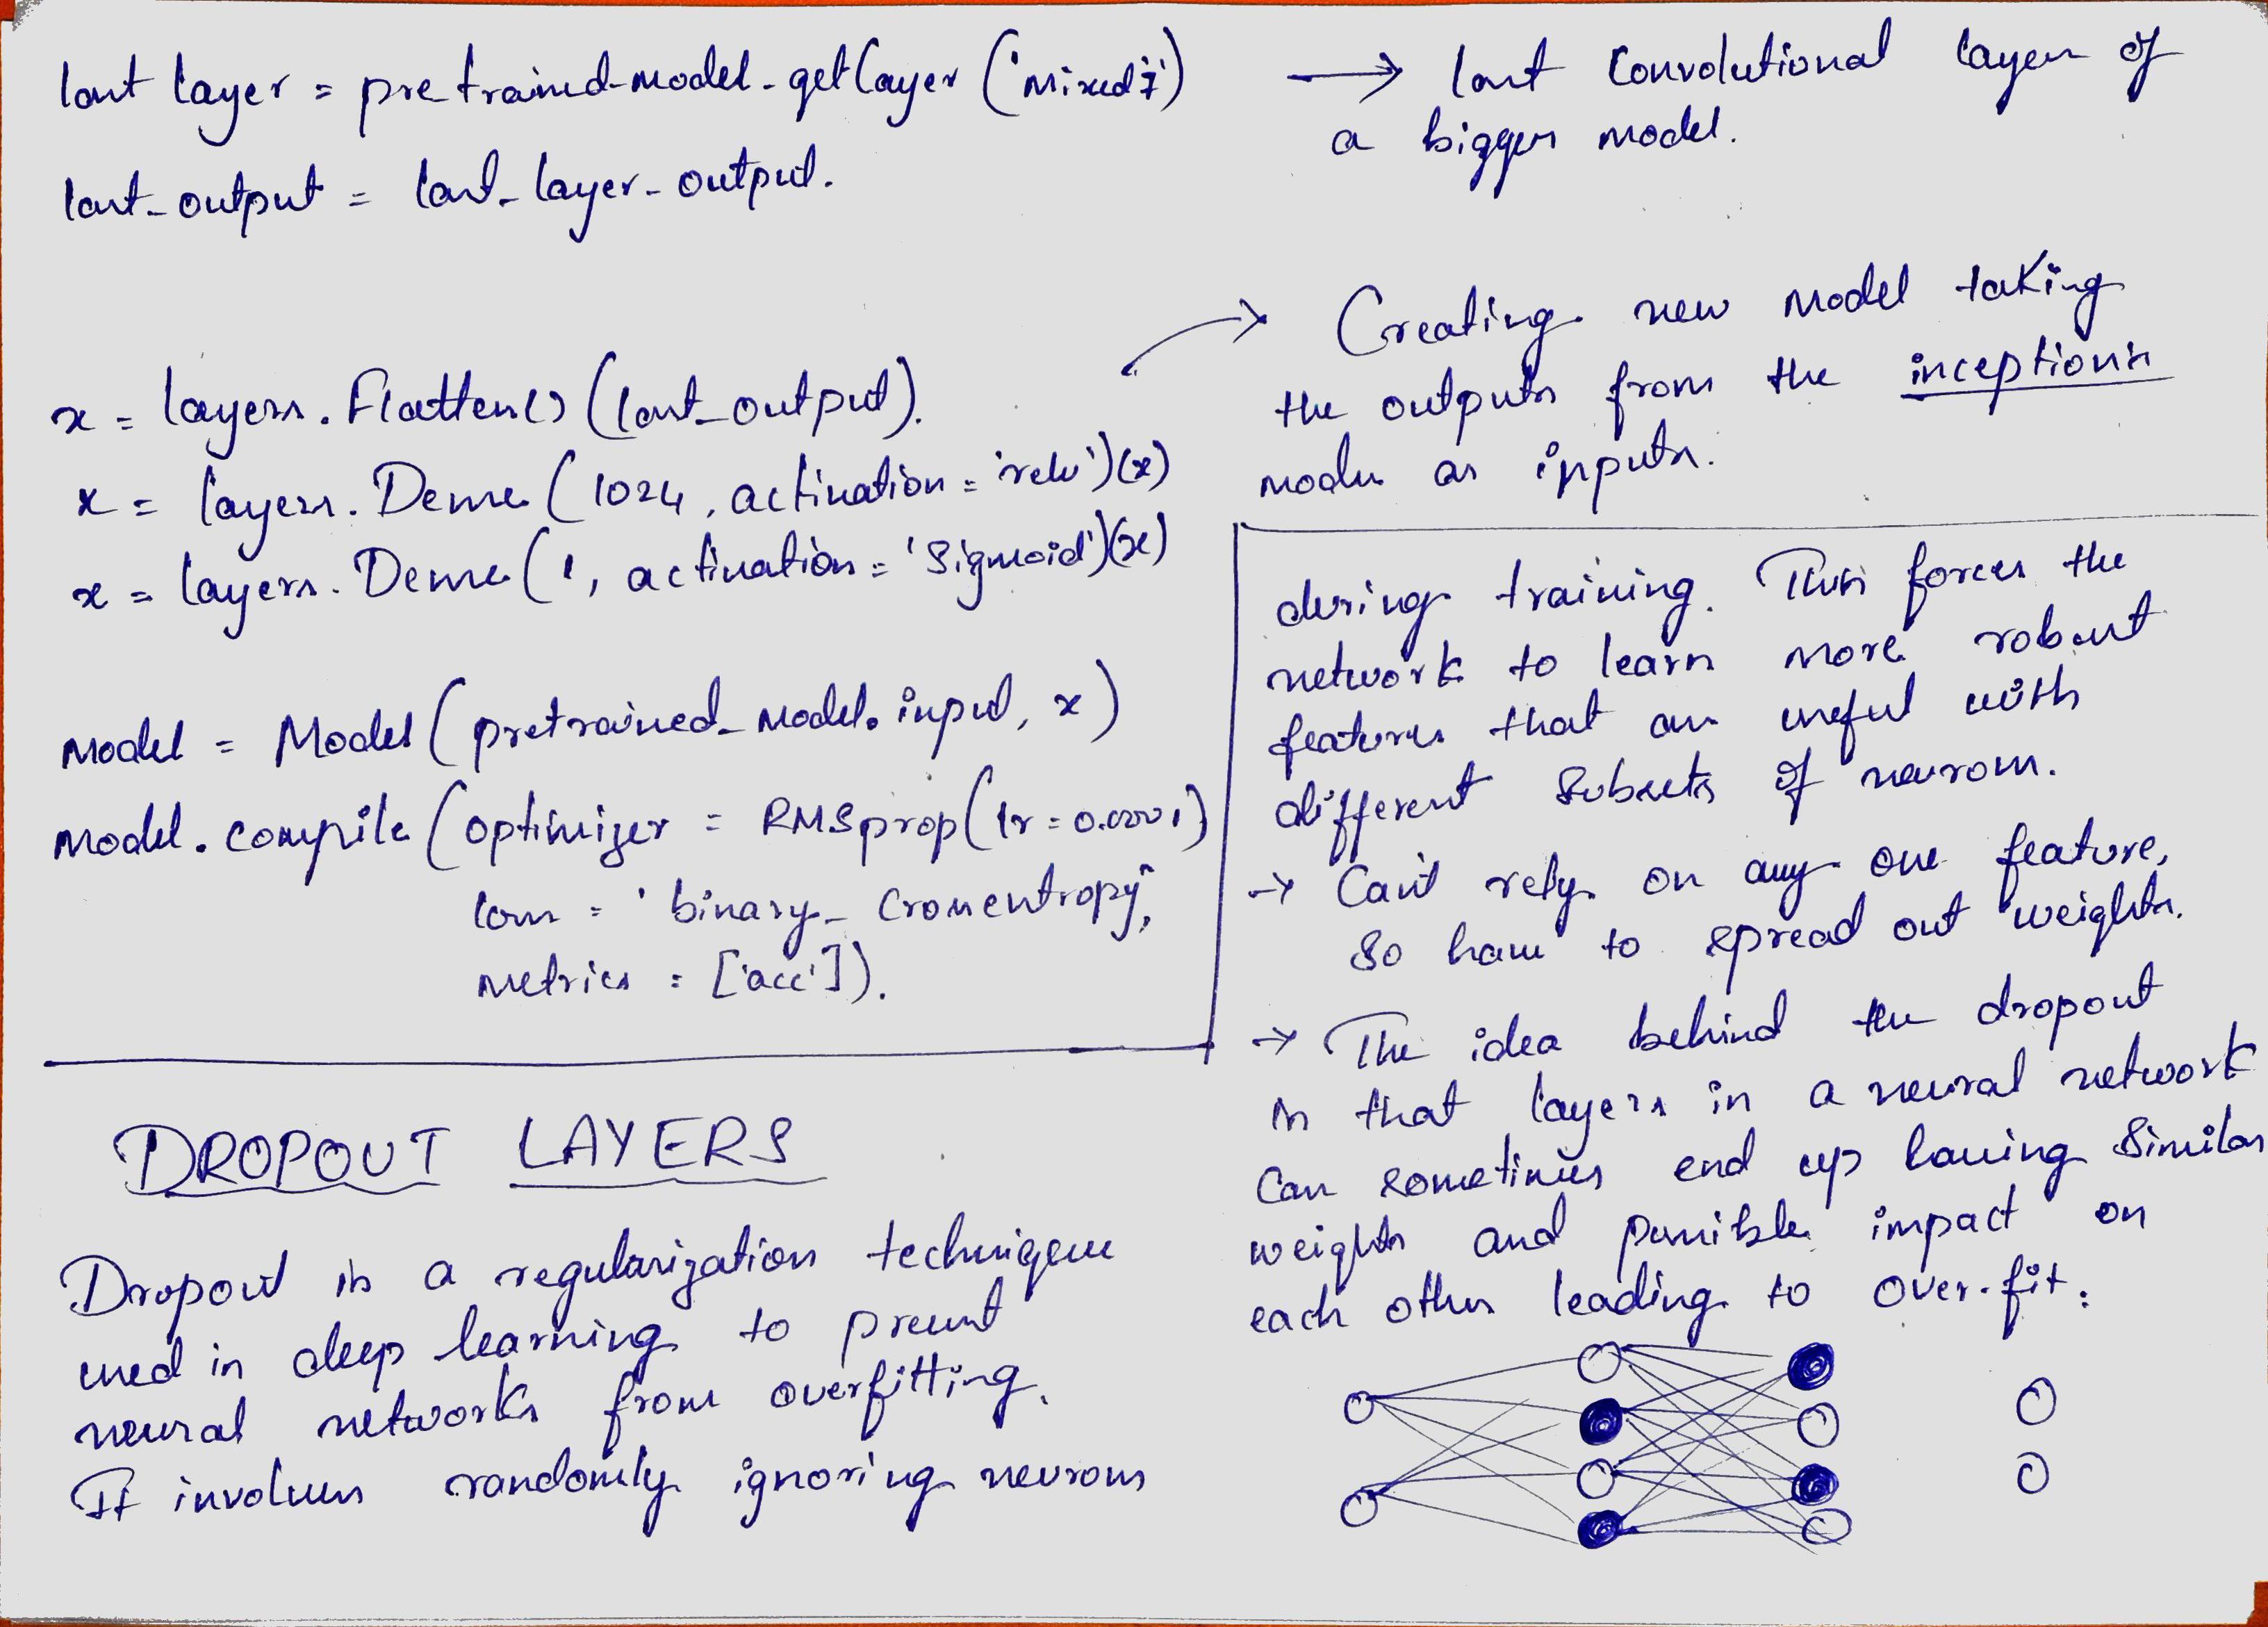 last layer = pretrained-model-getlayer ('mixed7')
last_output = last_layer-output.
→ last convolutional layer of
a bigger model.
x = layers.Flatten() (last_output).
x = layers.Dense (1024, activation = 'relu')(x)
x = layers.Dense (1, activation = 'sigmoid')(x)
→ Creating new model taking
the outputs from the inceptions
model as inputs.
model = Model (pretrained_model.input, x)
model.compile (optimizer = RMSprop(lr = 0.0001)
loss = 'binary_crossentropy',
metrics = ['acc']).
DROPOUT LAYERS
Dropout is a regularization technique
used in deep learning to prevent
neural networks from overfitting.
It involves randomly ignoring neurons
during training. This forces the
network to learn more robust
features that are useful with
different subsets of neurons.
→ Can't rely on any one feature,
so have to spread out weights.
→ The idea behind the dropout
is that layers in a neural network
can sometimes end up having similar
weights and possible impact on
each other leading to over-fit.